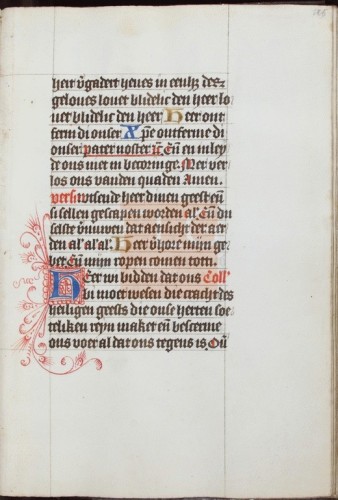 heer v̄gadert heves in eenh; des
geloves lovet blidelic den heer lo
uet blidelic den heer Heer ont
ferm di onser Xp̄e ontferme di
onser pater noster Eñ en inley
de ons niet in becoringe. Mer ver
los ons vanden quaden Amen.
vers wtsende heer dinen geest eñ
si sellen gescapen worden al. Eñ du
selste v̄nuwen dat aensicht der aer
den al' al' al'. Heer v̄hore mijn ge
bet Eñ mijn ropen comen totti.
Heer wi bidden dat ons Coll'
bi moet wesen die cracht des
heiligen geests die onse herten soe
teliken reyn maket eñ bescerme
ons voer al dat ons tegens is. Ou